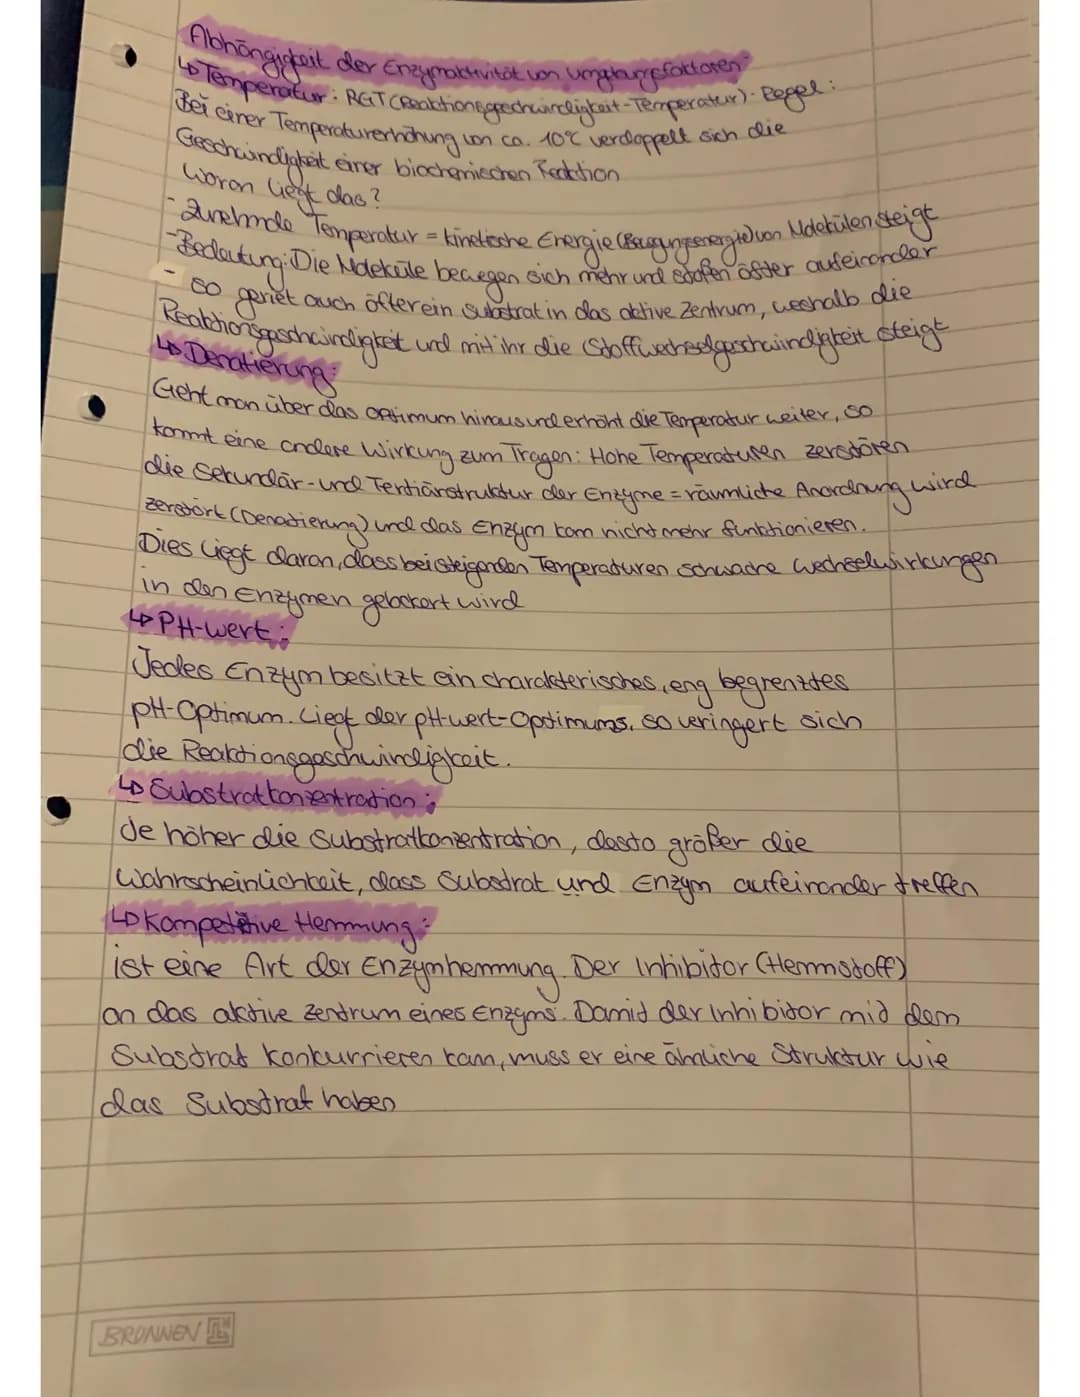 Abhängigkeit der Enzymaktivität von Umgebungsfaktoren:
↳ Temperatur: RGT (Reaktionsgeschwindigkeit-Temperatur)-Regel:
Bei einer Temperaturerhöhung von ca. 10°C verdoppelt sich die
Geschwindigkeit einer biochemischen Reaktion
Woran liegt das?
- Zunehmde Temperatur = kinetische Energie (Bewegungsenergie) von Molekülen steigt
- Bedeutung: Die Moleküle bewegen sich mehr und stoßen öfter aufeinander
- so geriet auch öfter ein Substrat in das aktive Zentrum, weshalb die
Reaktionsgeschwindigkeit und mit ihr die (Stoffwechselgeschwindigkeit steigt
↳ Denatierung:
Geht man über das Optimum hinaus und erhöht die Temperatur weiter, so
kommt eine andere Wirkung zum Tragen: Hohe Temperaturen zerstören
die Sekundär- und Tertiärstruktur der Enzyme = räumliche Anordnung wird
zerstört (Denatierung) und das Enzym kann nicht mehr funktionieren.
Dies liegt daran, dass bei steigenden Temperaturen schwache Wechselwirkungen
in den Enzymen gelockert wird
↳ PH-Wert:
Jedes Enzym besitzt ein charakterisches, eng begrenztes
pH-Optimum. Liegt der pH-Wert-Optimums, so veringert sich
die Reaktionsgeschwindigkeit.
↳ Substratkonzentration:
Je höher die Substratkonzentration, desto größer die
Wahrscheinlichkeit, dass Substrat und Enzym aufeinander treffen
↳ Kompetitive Hemmung:
ist eine Art der Enzymhemmung. Der Inhibitor (Hemmstoff)
an das aktive Zentrum eines Enzyms. Damit der Inhibitor mit dem
Substrat konkurrieren kann, muss er eine ähnliche Struktur wie
das Substrat haben
BRUNNEN